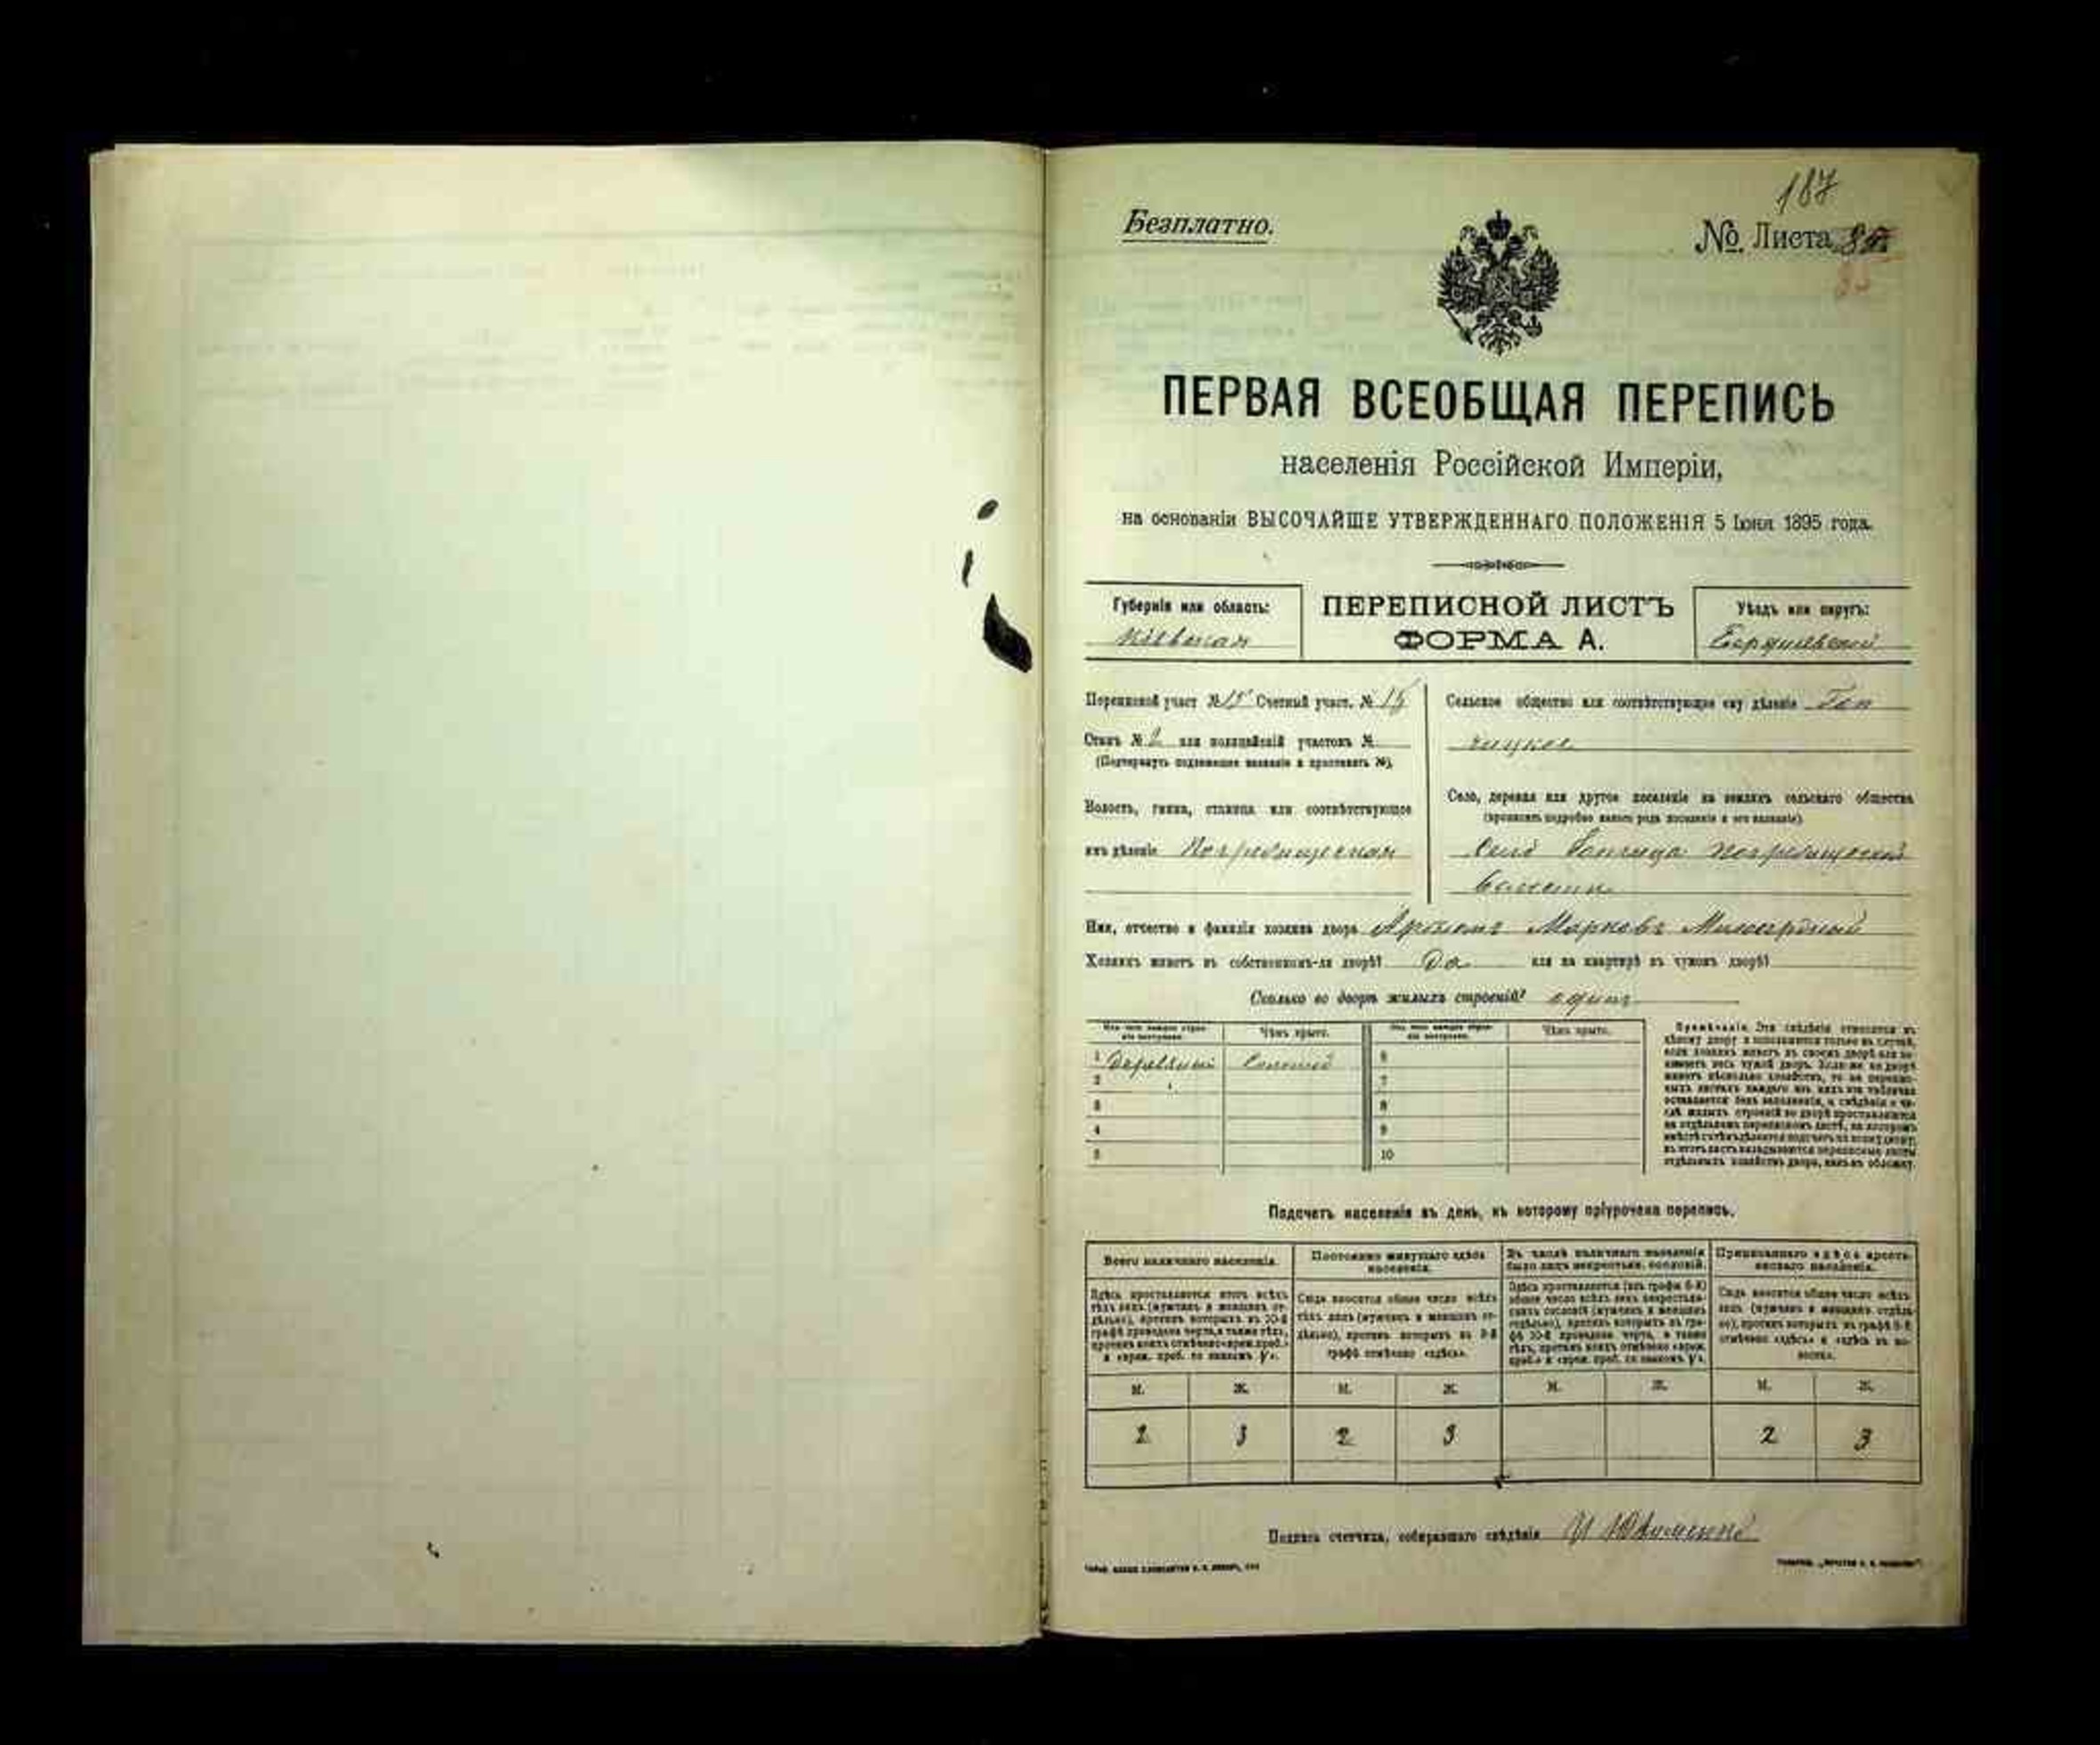 187
Безплатно.
№ Листа 85
ПЕРВАЯ ВСЕОБЩАЯ ПЕРЕПИСЬ
населенія Россійской Имперіи,
на основаніи ВЫСОЧАЙШЕ УТВЕРЖДЕННАГО ПОЛОЖЕНІЯ 5 Іюня 1895 года.
Губернія или область:
Кіевская
ПЕРЕПИСНОЙ ЛИСТЪ
ФОРМА А.
Уѣздъ или округъ:
Бердичевскій
Переписной участ №15 Счетный участ. №
Станъ № 2 или полицейскій участокъ №
(Подчеркнуть подлежащее названіе и проставить №).
Волость, гмина, станица или соотвѣтствующее
имъ дѣленіе Погребищеская
Сельское общество или соотвѣтствующее ему дѣленіе
Село, деревня или другое поселеніе на земляхъ сельскаго общества
(прописать подробно какого рода поселеніе и его названіе)
Село Погребищеской
волости
Имя, отчество и фамилія хозяина двора Марковъ
Хозяинъ живетъ въ собственномъ-ли дворѣ? Да или на квартирѣ въ чужомъ дворѣ?
Сколько во дворѣ жилыхъ строеній? одинъ
Изъ чего каждое строеніе построено. Чѣмъ крыто. Изъ чего каждое строеніе построено. Чѣмъ крыто.
1 Соломой 6
2 7
3 8
4 9
5 10
Примѣчаніе. Эти свѣдѣнія относятся къ
цѣлому двору и заполняются только въ случаѣ,
если хозяинъ живетъ въ своемъ дворѣ или за-
нимаетъ весь чужой дворъ. Если же во дворѣ
живетъ нѣсколько хозяйствъ, то на перепис-
ныхъ листахъ каждаго изъ нихъ эта табличка
оставляется безъ заполненія, а свѣдѣнія о чи-
слѣ жилыхъ строеній во дворѣ проставляются
на отдѣльномъ переписномъ листѣ, на которомъ
вмѣстѣ съ тѣмъ дѣлается подсчетъ по всему двору;
въ этотъ листъ вкладываются переписные листы
отдѣльныхъ хозяйствъ двора, какъ въ обложку.
Подсчетъ населенія въ день, къ которому пріурочена перепись.
Всего наличнаго населенія.
Здѣсь проставляется итогъ всѣхъ
тѣхъ лицъ (мужчинъ и женщинъ от-
дѣльно), противъ которыхъ въ 10-й
графѣ проведена черта, а также тѣхъ,
противъ коихъ отмѣчено «врем. проб.»
Постоянно живущаго здѣсь
населенія.
Сюда вносится общее число всѣхъ
тѣхъ лицъ (мужчинъ и женщинъ от-
дѣльно), противъ которыхъ въ 9-й
графѣ отмѣчено «здѣсь».
Въ числѣ наличнаго населенія
было лицъ некрестьян. сословій.
Здѣсь проставляется (изъ графы 6-й)
общее число всѣхъ лицъ некрестьян-
скихъ сословій (мужчинъ и женщинъ
отдѣльно), противъ которыхъ въ гра-
фѣ 10-й проведена черта, а также
тѣхъ, противъ коихъ отмѣчено «врем.
Приписаннаго здѣсь кресть-
янскаго населенія.
Сюда вносится общее число всѣхъ
лицъ (мужчинъ и женщинъ отдѣль-
но), противъ которыхъ въ графѣ 8-й
отмѣчено «здѣсь» и «здѣсь въ во-
лости».
М. Ж. М. Ж. М. Ж. М. Ж.
2 3 2 3 2 3
Подпись счетчика, собиравшаго свѣдѣнія